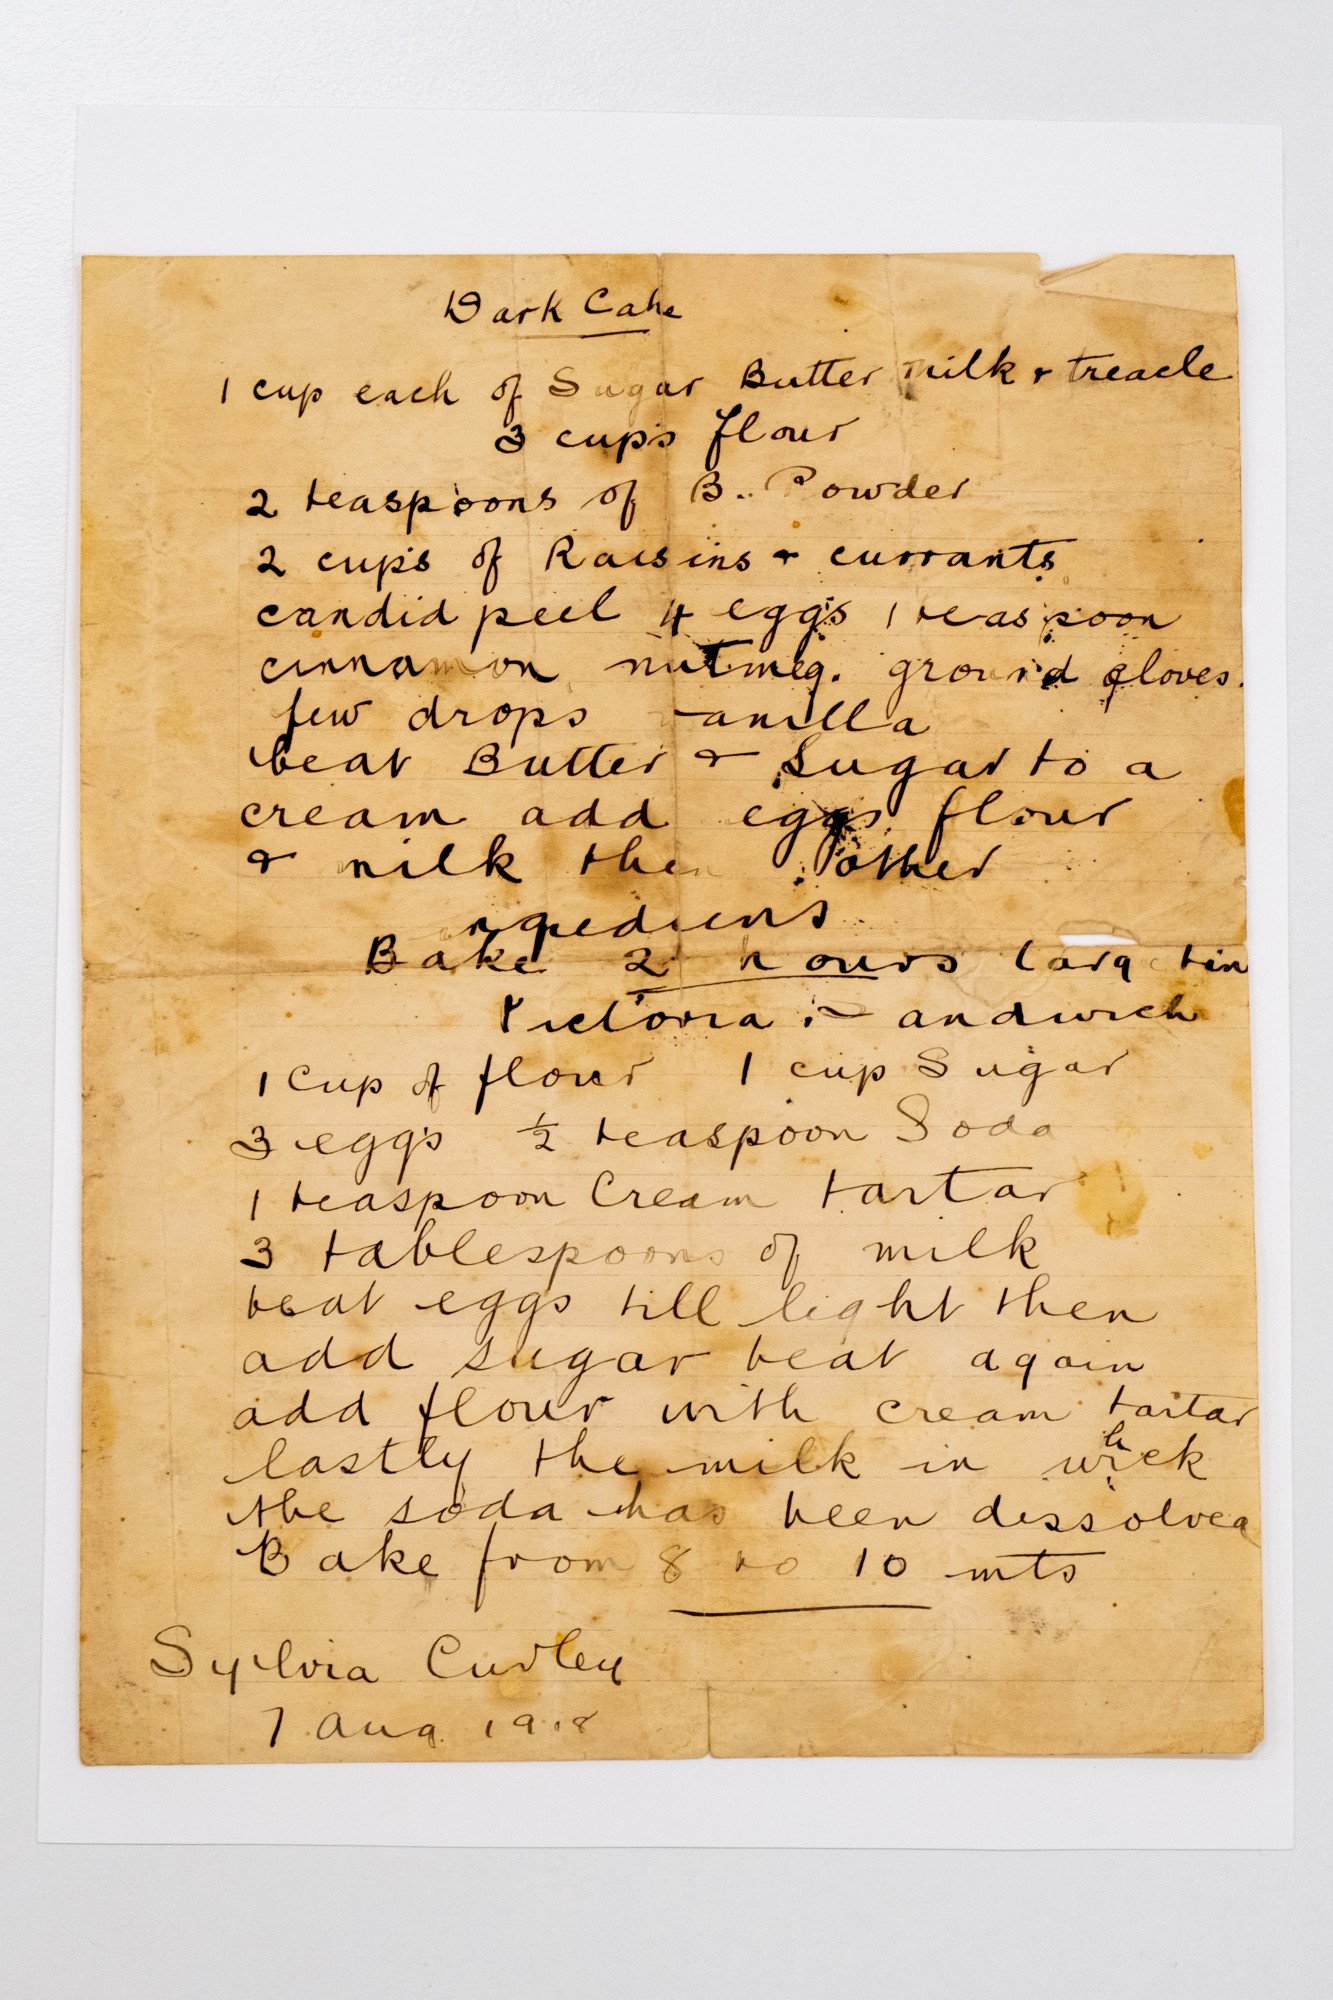 Dark Cake
1 cup each of Sugar Butter milk & treacle
3 cups flour
2 teaspoons of B. Powder
2 cups of Raisins & currants
candid peel 4 eggs 1 teaspoon
cinnamon nutmeg. ground cloves.
few drops vanilla
beat Butter & Sugar to a
cream add eggs flour
& milk then other
Bake 2 hours large tin
Victoria Sandwich
1 Cup of flour 1 cup Sugar
3 eggs ½ teaspoon Soda
1 teaspoon Cream tartar
3 tablespoons of milk
beat eggs till light then
add sugar beat again
add flour with cream tartar
lastly the milk in which
the soda has been dissolved
Bake from 8 to 10 mts
Sylvia Curley
7 Aug. 1918